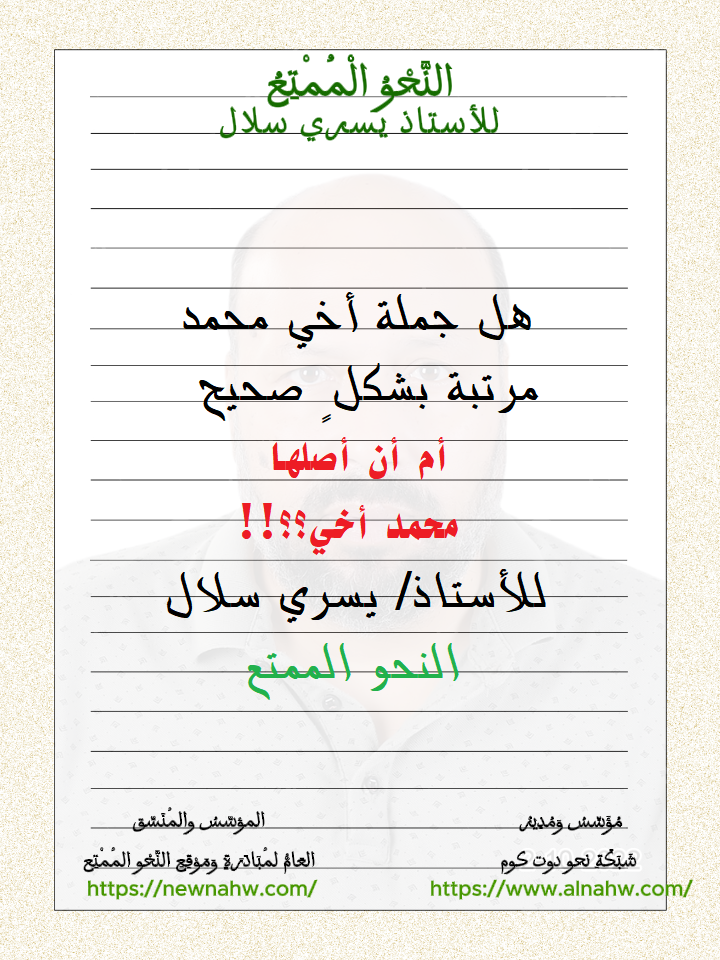 النَّحْوُ الْمُمْتِعُ
للأستاذ يسري سلال
هل جملة أخي محمد
مرتبة بشكلٍ صحيح
أم أن أصلها
محمد أخي؟؟!!
للأستاذ/ يسري سلال
النحو الممتع
مُؤَسِّسُ وَمُدِيرُ
شَبَكَةِ نحو دوت كوم
https://www.alnahw.com/
المؤسِّسُ والمُنَسِّق
العامُّ لمُبَادَرَةِ وَمَوقِعِ النَّحْوِ المُمْتِع
https://newnahw.com/